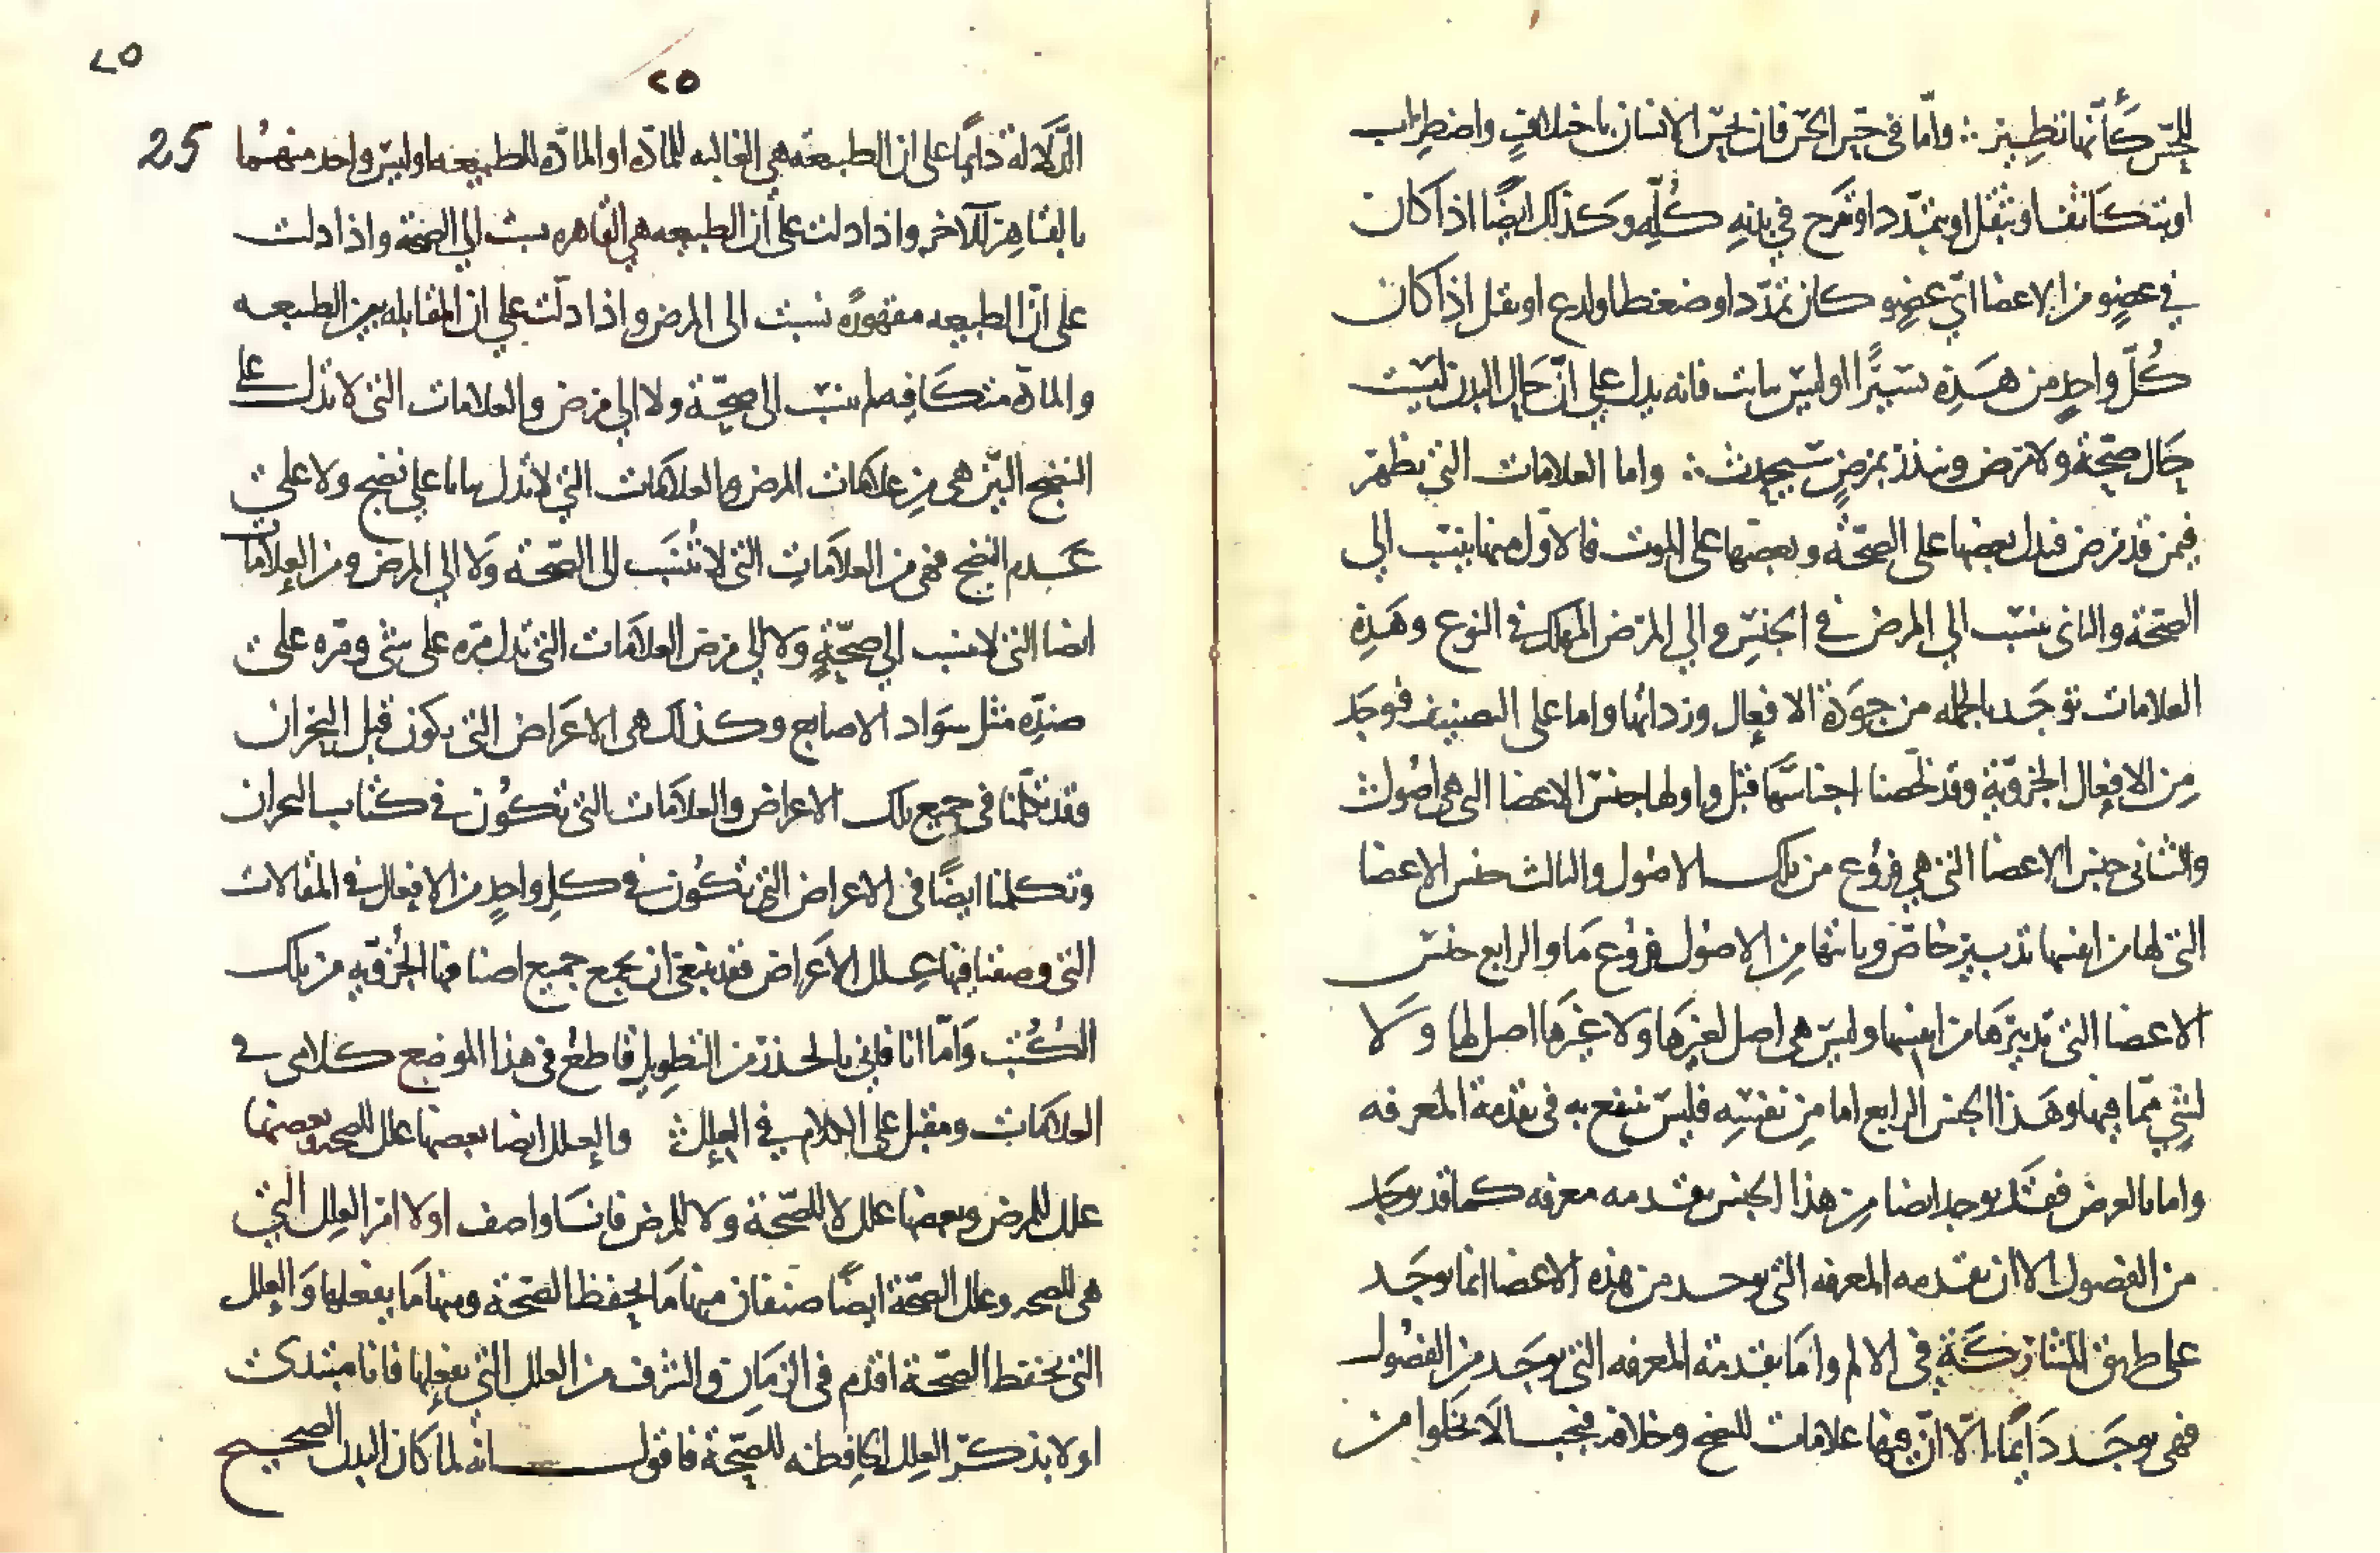 للحس كأنها تطير ∴ واما في حس الحس فان يحس الانسان باختلافٍ واضطراب
او بتكاثف او بثقل او بتمدد او تقرح في بدنه كُلّه وكذلك ايضًا اذا كان
في عضوٍ من الاعضا ايّ عضوٍ كان تمدّد او ضغط او لدع او ثقل اذا كان
كُلّ واحدٍ من هَذِه يسيرًا او ليس بثابت فانه يدل على انّ حال البدن ليست
حَال صحّة ولا مرض وينذر بمرضٍ سيحدث ∴ واما العلامات التي تظهر
فيمن قد مرض فيدل بعضها على الصحّة وبعضها على الموت فالاوّل منها ينسب الي
الصحّة والثاني ينسب الي المرض في الجنس والي المرض المهلك في النوع وهَذِه
العلامات توجَد بالجمله من جَودة الافعال وردائها واما على التصنيف فتوجَد
مِن الافعال الجزويّة وقد لخّصنا اجناسَها قبل واولها جنس الاعضا التي هي اصُول
والثاني جنس الاعضا التي هي فروُع من تلك الاصُول والثالث جنس الاعضا
التي لها من انفسها تدبير خاصّ وياتيها مِن الاصُول فروُع مَا والرابع جنس
الاعضا التي تدبيرَها من انفسها وليسَ هي اصل لغيرَها ولا غيرَها اصل لها وَلا
لشيٍ ممّا فيها وهَذا الجنس الرابع اما مِن نفسِه فليسَ ينتفع به في تقدمة المعرفه
واما بالعرض فقد يوجد ايضا مِن هذا الجنس تقدمه معرفه كما قد يوجَد
من الفصول الا ان تقدمه المعرفه التي توجد من هذه الاعضا انما توجَد
على طريق المشاركَة في الالم وامَا تقدمة المعرفه التي توجَد من الفصُول
فهي توجَد دَايمًا الّا انّ فيها علامات للنضج وخلافه فيجب الّا يخلوا من
٢٥
٢٥
25
الدّلالة دايمًا على ان الطبيعه هي الغالبه للمادّه او المادّه للطبيعه او ليس واحد منهُما
بالقاهِر للاخر واذا دلت على ان الطبيعه هي القاهره نسبت الي الصحّة واذا دلت
على انّ الطبيعه مقهورةً نسبت الى المرض واذا دلّت على ان المقابله بين الطبيعه
والمادّه متكَافيه لم ينسب الى صحّة ولا الي مرض والعلامات التي لا تدل على
النضج البيّن هي مِن علامات المرض والعلامات التي لا تدل بيانا على نضج ولا على
عَدم النضج فهي من العلاماتِ التي لا تُنسَب الى الصّحّه وَلا الي المرض ومن العلامات
ايضا التي لا تنسب الي صحّةٍ ولا الي مرض العلامَات التي تدل مرّه على شي ومرّه على
ضدِّه مثل سَواد الاصابع وكذلك هي الاعَراض التي تكون قبل البحران
وقد تكلّمنا في جميع تلك الاعراض والعلامَات التي تكوُن في كتاب البحران
وتكلمنا ايضًا في الاعراض التي تكُون في كلِ واحدٍ من الافعال في المقالات
التي وصفنا فيها عِلل الاعَراض فقد ينبغي ان يجمع جميع اصنافها الجُزويّه من تلك
الكُتب وَامّا انا فاني بالحذر من التطويل قاطعُ في هذا الموضع كلامى في
العلامَات ومقبل على الكلام في العلل والعلل ايضا بعضها علل للصحه وبعضها
علل للمرض وبعضها علل لا للصّحّة ولا للمرض فانَا واصف اولا امر العِلل التي
هي للصحه وعلل الصّحّة ايضًا صنفان منها مَا يحفظ الصّحّة ومنها مَا يفعلها وَالعلل
التي تحفظ الصّحّة اقدم في الزمَان والشرف من العلل التي تفعِلها فانا مبتدئ
اولا بذكر العِلل الحافِظه للصّحّة فاقول انه لما كان البدن الصحيح